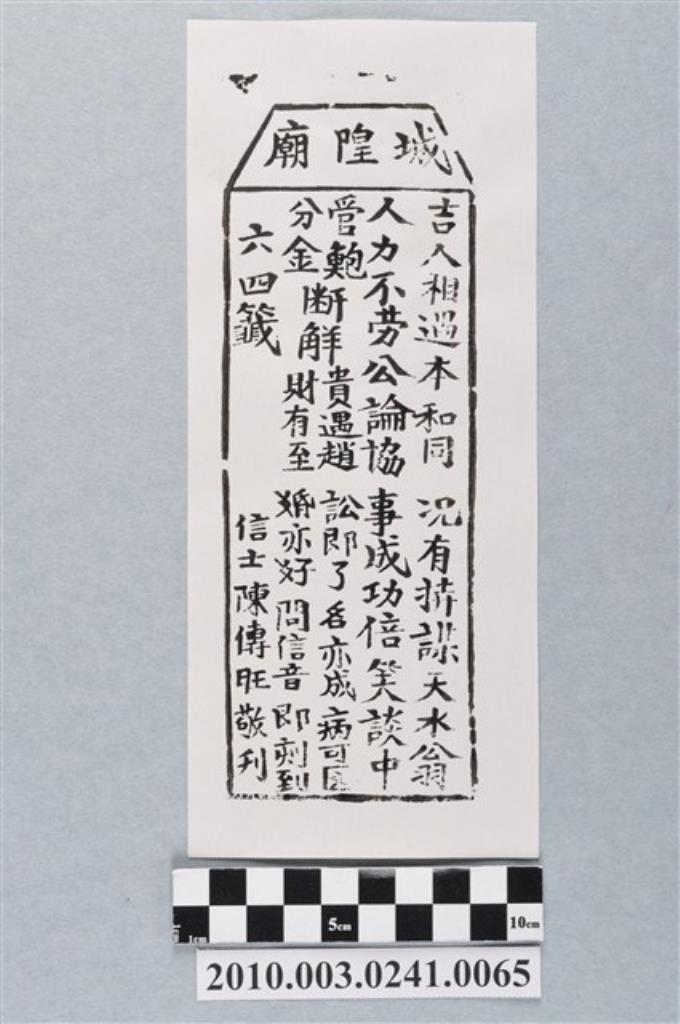 城隍廟
吉人相遇本和同 況有持謀天水翁
人力不勞公論協 事成功倍笑談中
管鮑分金
斷解
貴遇趙 訟即了 名亦成 病可医
財有至 婚亦好 問信音 即刻到
六四籤
信士陳傳旺敬刋
5cm
10cm
1cm
2010.003.0241.0065